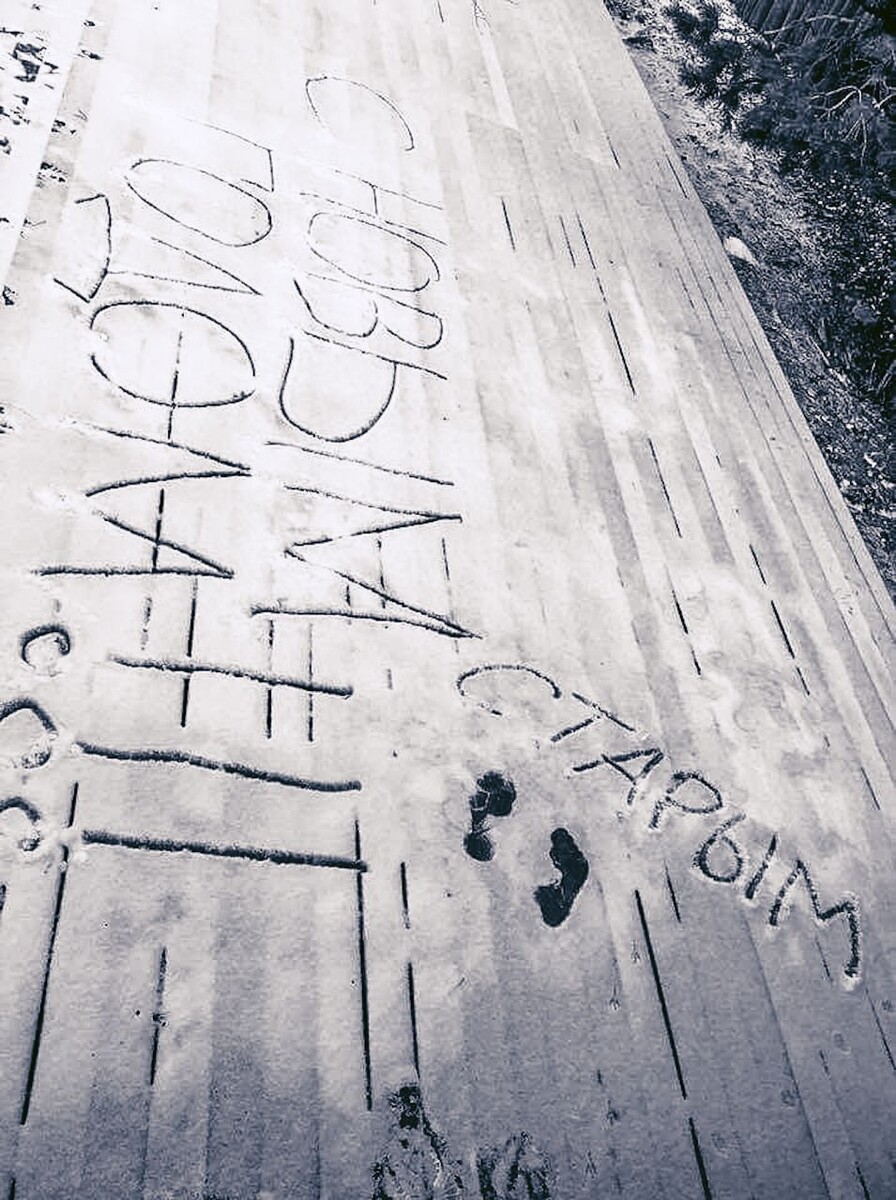 С НОВЫМ
ГОДОМ!!!
СТАРЫМ